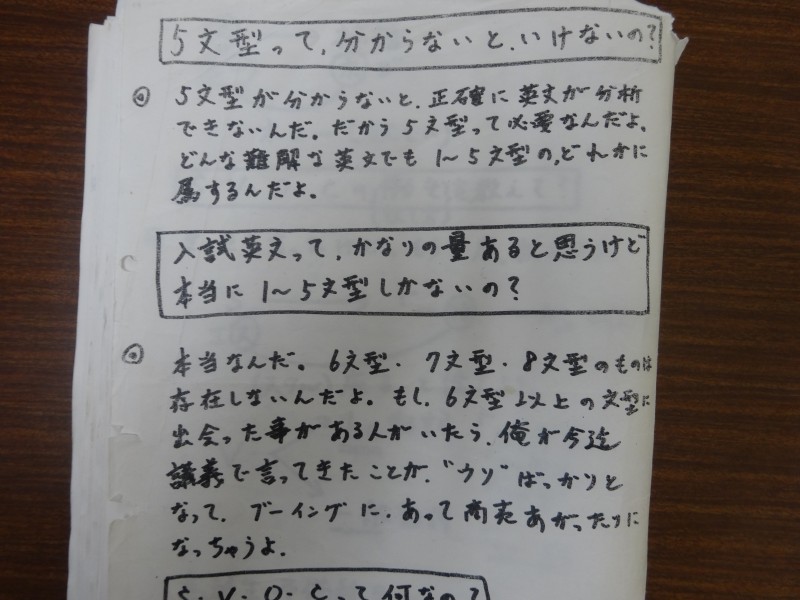 5文型って,分からないと,いけないの?
◎ 5文型が分からないと,正確に英文が分析
できないんだ。だから5文型って必要なんだよ。
どんな難解な英文でも1〜5文型の,どれかに
属するんだよ。
入試英文って,かなりの量あると思うけど
本当に1〜5文型しかないの?
◎ 本当なんだ。6文型・7文型・8文型のものは
存在しないんだよ。もし,6文型以上の文型に
出会った事がある人がいたら,俺が今迄
講義で言ってきたことが,"ウソ"ばっかりと
なって,ブーイングに,あって商売あがったりに
なっちゃうよ.
S・V・O・Cって何なの?